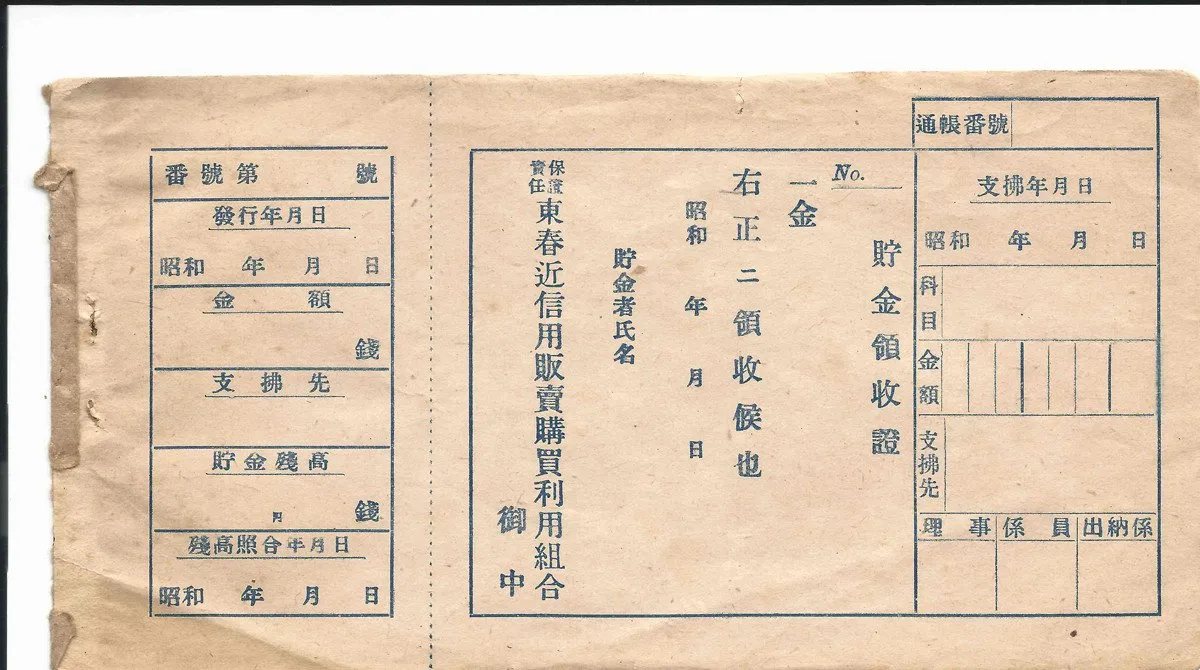 番號第　號
發行年月日
昭和　年　月　日
金　額
錢
支拂先
貯金殘高
円　錢
殘高照合年月日
昭和　年　月　日
通帳番號
支拂年月日
昭和　年　月　日
科目
金額
支拂先
理事
係員
出納係
貯金領收證
No.
一金
右正ニ領收候也
昭和　年　月　日
貯金者氏名
保證責任
東春近信用販賣購買利用組合
御中